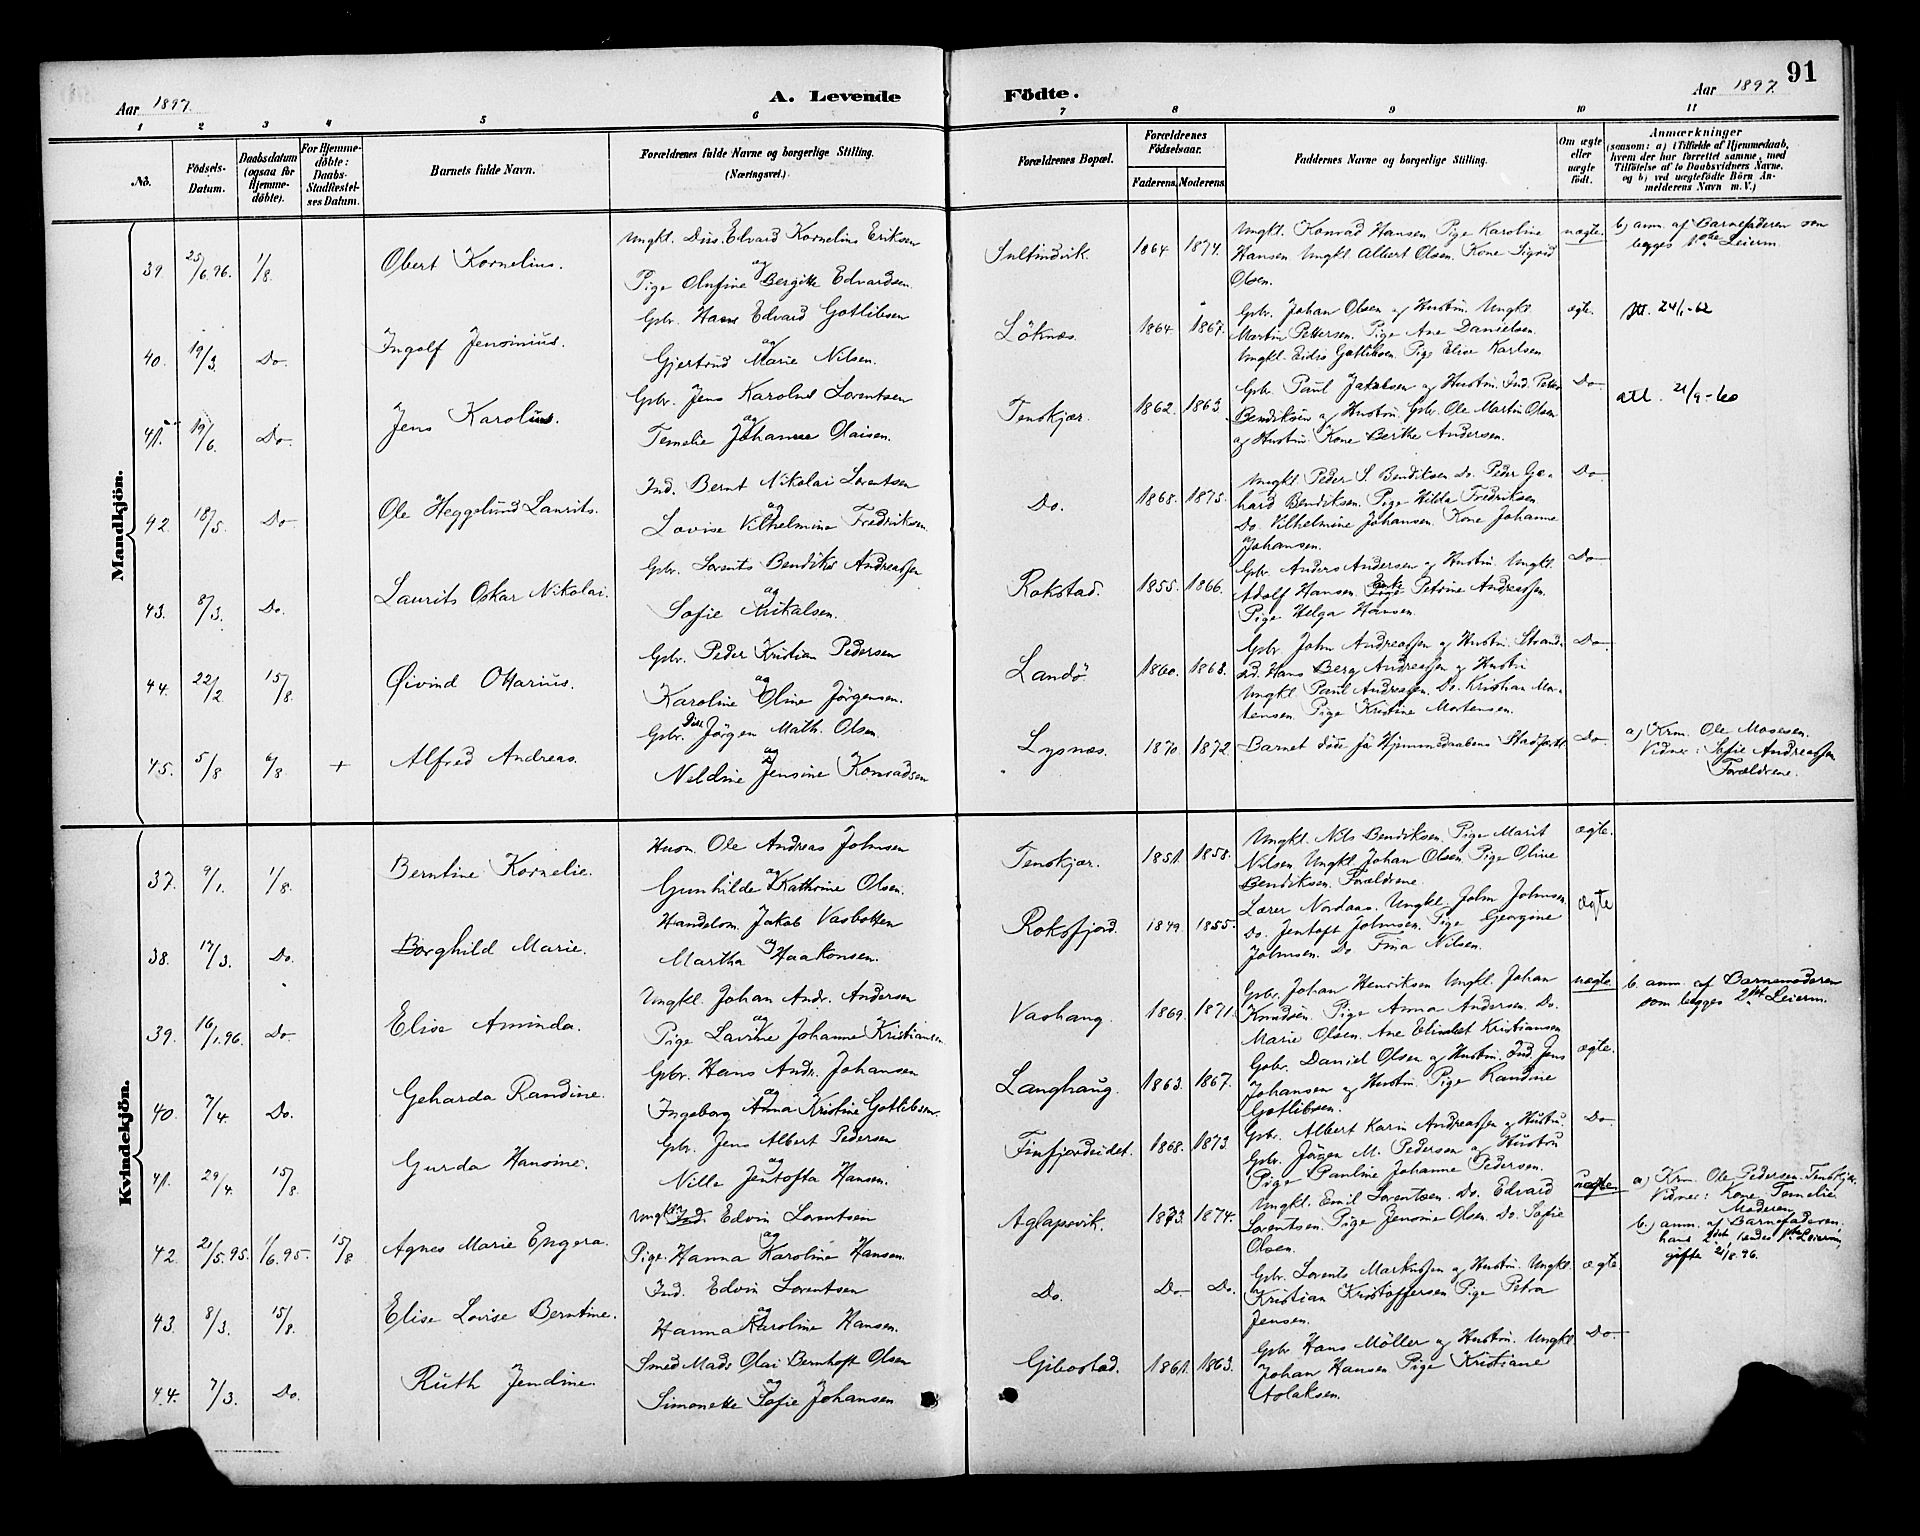 91
Aar 1897.
A. Levende
Födte.
Aar 1897.
1 2 3 4 5 6 7 8 9 10 11
No.
Födsels-
Datum.
Daabsdatum
(ogsaa for
Hjemme-
döbte).
For Hjemme-
döbte:
Daabs-
Stadfæstel-
ses Datum.
Barnets fulde Navn.
Forældrenes fulde Navne og borgerlige Stilling.
(Næringsvei.)
Forældrenes Bopæl.
Forældrenes
Födselsaar.
Faderens. Moderens.
Faddernes Navne og borgerlige Stilling.
Om ægte
eller
uægte
födt.
Anmærkninger
(saasom: a) i Tilfælde af Hjemmedaab,
hvem der har forrettet samme, med
Tilföielse af to Daabsvidners Navne,
og b) ved uægtefödte Börn An-
melderens Navn m. V.)
Mandkjön.
39. 25/6.96. 1/8. Obert Kornelius.
Ungkl. Diss. Edvard Kornelius Eriksen
og
Pige Olufine Bergitte Edvardsen.
Sultindvik. 1864. 1874.
Ungkl. Konrad Hansen. Pige Karoline
Hansen. Ungkl. Albert Olsen. Kone Sigrid
Olsen.
uægte.
b) anm. af Barnefaderen som
begges 1ste Leierm.
40. 19/3. Do. Ingolf Jensinius.
Gbr. Hans Edvard Gotlibsen
og
Gjertrud Marie Nilsen.
Löknæs. 1864. 1867.
Gbr. Johan Olsen og Hustru. Ungkl.
Martin Pettersen. Pige Ane Danielsen.
Ungkl. Eidis Gotlibsen. Pige Elise Karlsen
ægte.
Att. 24/1-62
41. 19/6. Do. Jens Karolius.
Gbr. Jens Karolius Lorentsen
og
Temelie Johanne Olaisen.
Tenskjær. 1862. 1863.
Gbr. Paul Jakobsen og Hustru. Ind. Peter
Bendiksen og Hustru. Gbr. Ole Martin Olsen
og Hustru. Kone Berthe Andersen.
Do.
att. 21/9-60
42. 18/5. Do. Ole Heggelund Laurits.
Ind. Bernt Nikolai Lorentsen
og
Lovise Vilhelmine Fredriksen.
Do. 1868. 1875.
Ungkl. Peder S. Bendiksen. Do. Peder Ge-
hard Bendiksen. Pige Hilda Fredriksen
Do. Vilhelmine Johansen. Kone Johanne
Johansen.
Do.
43. 8/3. Do. Laurits Oskar Nikolai.
Gbr. Lorents Bendiks Andreassen
og
Sofie Mikalsen.
Rokstad. 1855. 1866.
Gbr. Anders Andersen og Hustru. Ungkl.
Adolf Hansen. Petrine Andreassen.
Pige Helga Hansen.
Do.
44. 22/2 15/8. Øivind Ottarius.
Gbr. Peder Kristian Pedersen
og
Karoline Oline Jörgensen.
Landö. 1860. 1868.
Gbr. John Andreassen og Hustru. Strand-
sd. Hans Berg Andreassen og Hustru
Ungkl. Paul Andreassen. Do. Kristian Mor-
tensen. Pige Kristine Mortensen.
Do.
45. 5/8 6/8 + Alfred Andreas.
Gbr. Jörgen Math. Olsen.
og
Neldine Jensine Konradsen
Lysnæs. 1870. 1872.
Barnet döde för Hjemmedaabens Stadfæst.
Do.
a) Krm. Ole Mosesen.
Vidner: Sofie Andreassen
Forældrene.
Kvindekjön.
37. 9/1. 1/8. Berntine Kornelie.
Husm. Ole Andreas Johnsen
og
Gunhilde Kathrine Olsen.
Tenskjær. 1851. 1858.
Ungkl. Nils Bendiksen. Pige Marit
Nilsen. Ungkl. Johan Olsen. Pige Oline
Bendiksen. Forældrene.
ægte.
38. 17/3. Do. Borghild Marie.
Handelsm. Jakob Vasbotten
og
Martha Haakonsen.
Roksfjord. 1849. 1855.
Lærer Nordaas. Ungkl. John Johnsen.
Do. Jentoft Johnsen. Pige Georgine
Johnsen. Do. Tina Nilsen.
ægte
39. 16/1.96. Do. Elise Aminda.
Ungkl. Johan Andr. Andersen
og
Pige Lavine Johanne Kristiansen.
Vashaug. 1869. 1871.
Gbr. Johan Henriksen. Ungkl. Johan
Knudsen. Pige Anna Andersen. Do.
Marie Olsen. Ane Elisabet Kristiansen
uægte.
b. anm. af Barnemoderen
som begges 2det Leierm.
40. 7/4. Do. Geharda Randine.
Gbr. Hans Andr. Johansen
og
Ingeborg Anna Kristine Gotlibsen.
Langhaug. 1863. 1867.
Gbr. Daniel Olsen og Hustru. Ind. Jens
Johansen og Hustru. Pige Randine
Gotlibsen.
ægte.
41. 29/4. 15/8. Gurda Hansine.
Gbr. Jens Albert Pedersen
og
Nille Jentofta Hansen.
Finfjordeidet. 1868. 1873.
Gbr. Albert Karin Andreassen og Hustru.
Gbr. Jörgen M. Pedersen og Hustru
Pige Pauline Johanne Pedersen.
Do.
42. 21/5.95. 1/6.95. 15/8 Agnes Marie Engera.
Ungkl. Ind. Edvin Lorentsen
og
Pige. Hanna Karoline Hansen.
Aglapsvik. 1873. 1874.
Ungkl. Emil Lorentsen. Do. Edvard
Lorentsen. Pige Jensine Olsen. Do. Sofie
Olsen.
uægte
a) Krm. Ole Pedersen. Tenskjær.
Vidner: Kone Temelie
Moderen.
b.) anm. af Barnefaderen.
hans 2det hendes 1ste Leierm.
gifte 21/8.96.
43. 8/3. 15/8. Elise Lovise Berntine.
Ind. Edvin Lorentsen
og
Hanna Karoline Hansen.
Do. Do. Do.
Gbr. Lorents Markussen og Hustru. Ungkl.
Kristian Kristoffersen. Pige Petra
Jensen.
ægte.
44. 7/3. Do. Ruth Jendine.
Smed Mads Olai Bernhoft Olsen
og
Simonette Sofie Johansen
Gibostad. 1861. 1863.
Gbr. Hans Möller og Hustru. Ungkl.
Johan Hansen. Pige Kristiane
Aslaksen.
Do.